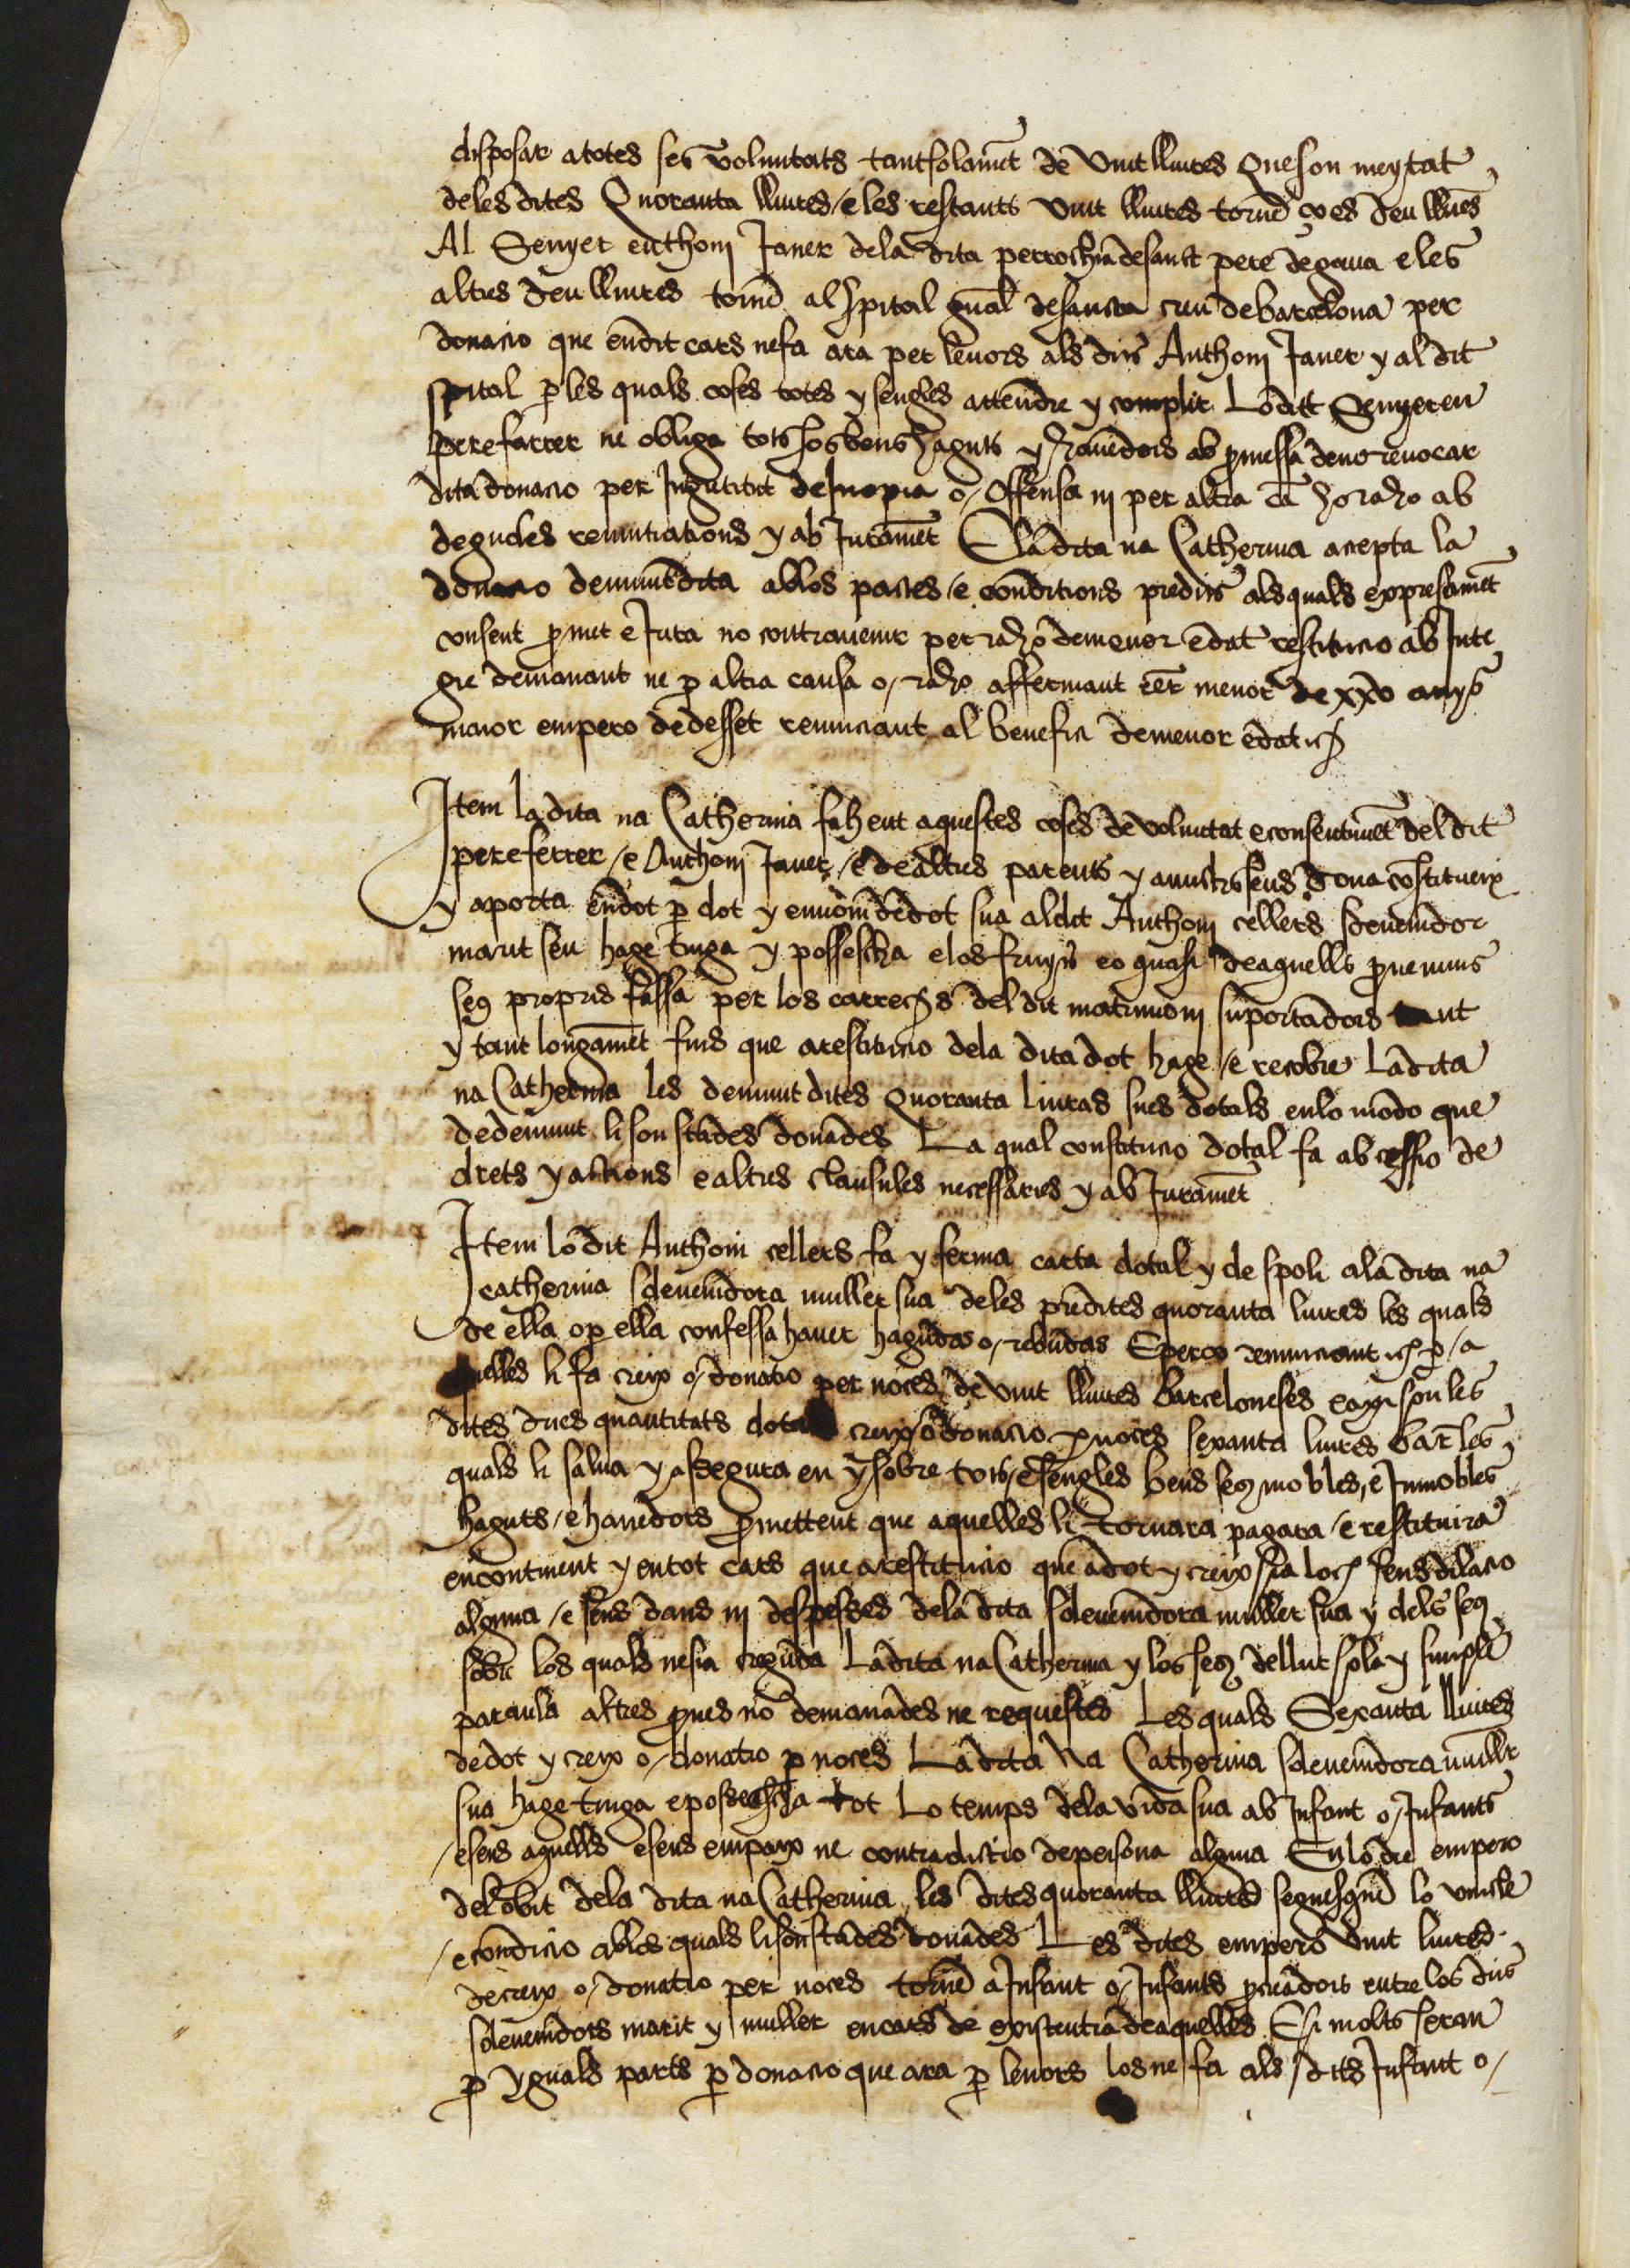 disposar atotes ses voluntats tantsolamēt de vint lliures que son meytat
deles dites Quoranta lliures / e les restants vint lliures tornē ço es deu lliūes
Al Senyer enthoni Janer dela dita perrochia desanct pere degaua e les
altres deu lliures tornē al spital gnāl desancta creu debarcelona per
donacio que endit cars nefa ara per lauors als dits Anthoni Janer y al dit
spital p les quals coses totes y sengles attendre y complir Lo ditt Senyer en
pere farrer ne obliga tots sos bens haguts y hauedors ab pmessa deno reuocar
dita donacio per Ingratitut de Inopia o / Offensa ni per altra cā ho raho ab
degudes renuntiations y ab Juramēt E la dita na Catherina acepta la
donacio demuntdita ab los pactes / e conditions predits als quals expresamēt
consent pmet e Jura no contrauenir per raho demenor edat restitucio ab Inte
gre demanant ne p altra causa o / raho affermant eēr menor de xxv anys
maior empero dedesset renunciant al benefici demenor edat ꝛc
Item la dita na Catherina fahent aquestes coses de voluntat e consentimēt del dit
pere ferrer / e Anthoni Janer / e de altres parents y amichs seus dona cōstitueix
y aporta en dot p dot y en nom de dot sua al dit Anthoni cellers sdeuenidor
marit seu hage tinga y possescha e los fruyts eo quasi de aquells prouenints
seus propris fassa per los carrechs del dit matrimoni suportadors tant
y tant longamēt fins que a restitucio dela dita dot hage / e recobre La dita
na Catherina les demunt dites Quoranta liuras sues dotals en lo modo que
dedemunt li son stades donades La qual constitucio dotal fa ab cessio de
drets y actions e altres clausules necessaries y ab Juramēt
Item lo dit Anthoni cellers fa y ferma carta dotal y de spoli ala dita na
catherina sdeuenidora muller sua deles predites quoranta liures les quals
de ella o p ella confessa hauer hagudas o / rebudas E perço renunciant ꝛc p / a
quelles li fa creix o / donatio per noces de vint lliures Barceloneses e axi son les
dites dues quantitats dotal creix o donacio p noces sexanta liures bar̄ les
quals li salua y assegura en y sobre tots / e sengles bens seus mobles, e Inmobles
haguts / e hauedors pmettent que aquelles li tornara pagara / e restituira
encontinent y entot cars que a restitucio que a dot y creix sia loch sens dilacio
alguna / e sens dans ni despesses dela dita sdeuenidora muller sua y dels seus
sobre los quals ne sia creguda La dita na Catherina y los seus dellur sola y simple
paraula altres pues no demanades ne requestes Les quals Sexanta lliures
dedot y creix o / donatio p noces La dita Na Catherina sdeuenidora muller
sua hage tinga e possechscha tot Lo temps dela vida sua ab Infant o / Infants
/ e sens aquells e sens empaix ne contradictio depersona alguna En lo die empero
del obit dela dita na Catherina, les dites quoranta lliures seguesquē lo vincle
/ e condicio ab los quals li son stades donades Les dites empero vint liures
de creix o / donatio per noces tornē a Infant o / Infants pcreadors entre los dits
sdeuenidors marit y muller en cars de existentia de aquelles E si molts seran
p yguals parts p donacio que ara p lauors los ne fa als dits Infant o /